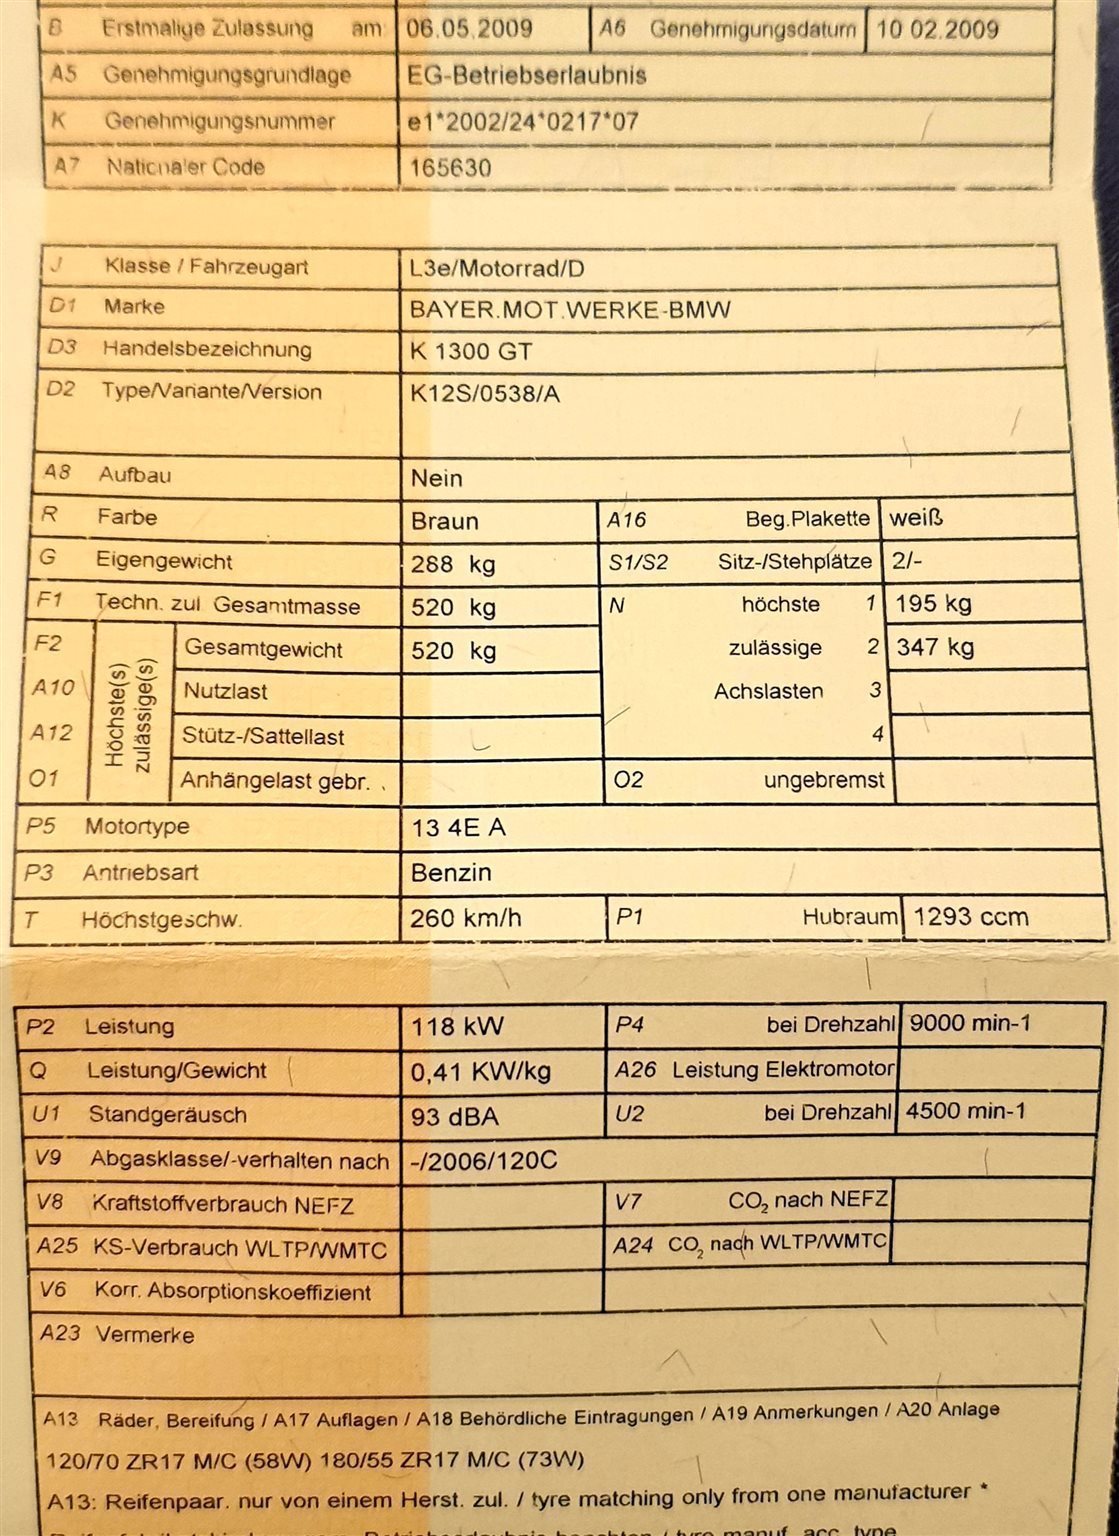 B Erstmalige Zulassung am 06.05.2009 A6 Genehmigungsdatum 10 02.2009
A5 Genehmigungsgrundlage EG-Betriebserlaubnis
K Genehmigungsnummer e1*2002/24*0217*07
A7 Nationaler Code 165630
J Klasse / Fahrzeugart L3e/Motorrad/D
D1 Marke BAYER.MOT.WERKE-BMW
D3 Handelsbezeichnung K 1300 GT
D2 Type/Variante/Version K12S/0538/A
A8 Aufbau Nein
R Farbe Braun A16 Beg.Plakette weiß
G Eigengewicht 288 kg S1/S2 Sitz-/Stehplätze 2/-
F1 Techn. zul Gesamtmasse 520 kg N höchste 1 195 kg
F2 Höchste(s) zulässige(s) Gesamtgewicht 520 kg zulässige 2 347 kg
A10 Nutzlast Achslasten 3
A12 Stütz-/Sattellast 4
O1 Anhängelast gebr. O2 ungebremst
P5 Motortype 13 4E A
P3 Antriebsart Benzin
T Höchstgeschw. 260 km/h P1 Hubraum 1293 ccm
P2 Leistung 118 kW P4 bei Drehzahl 9000 min-1
Q Leistung/Gewicht 0,41 KW/kg A26 Leistung Elektromotor
U1 Standgeräusch 93 dBA U2 bei Drehzahl 4500 min-1
V9 Abgasklasse/-verhalten nach -/2006/120C
V8 Kraftstoffverbrauch NEFZ V7 CO₂ nach NEFZ
A25 KS-Verbrauch WLTP/WMTC A24 CO₂ nach WLTP/WMTC
V6 Korr. Absorptionskoeffizient
A23 Vermerke
A13 Räder, Bereifung / A17 Auflagen / A18 Behördliche Eintragungen / A19 Anmerkungen / A20 Anlage
120/70 ZR17 M/C (58W) 180/55 ZR17 M/C (73W)
A13: Reifenpaar. nur von einem Herst. zul. / tyre matching only from one manufacturer *